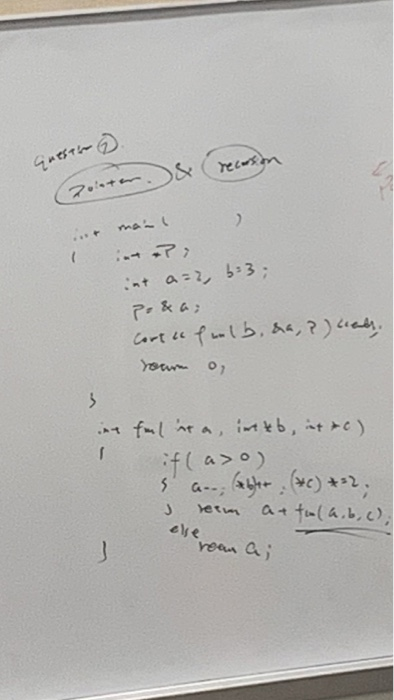 Question ②.
Pointer. & recursion
int main( )
{ int *P;
int a=2, b=3;
P=&a;
cout << fun(b, &a, P) << endl;
return 0;
}
int fun( int a, int *b, int *c)
{ if( a>0)
{ a--; (*b)++; (*c) *=2;
} return a + fun(a,b,c);
else
} return a;